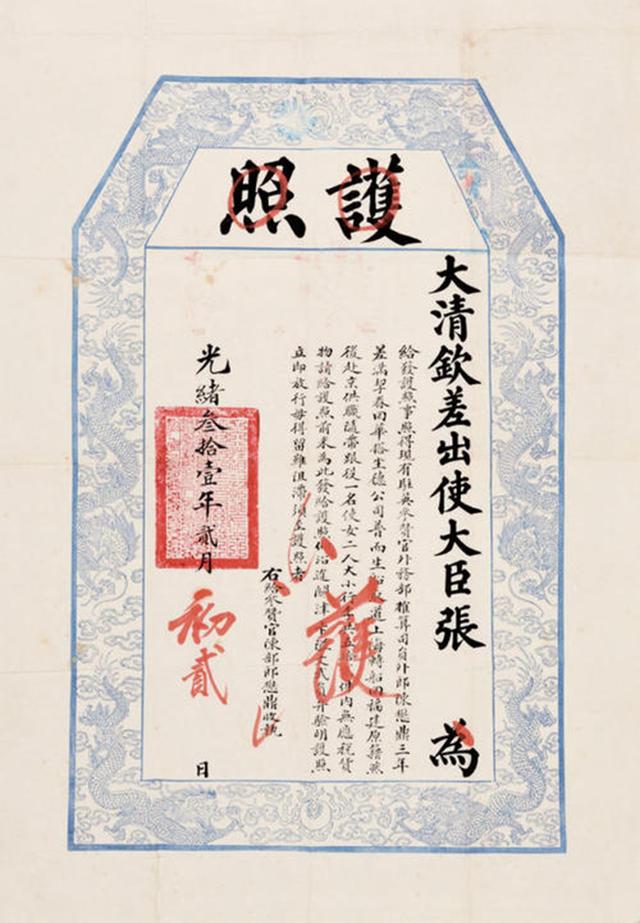 護照
大清欽差出使大臣張 為
給發護照事照得現有駐英參贊官外務部榷算司員外郎陳懋鼎三年
差滿挈眷回華搭坐德公司普而生船道上海轉船回福建原籍然
後赴京供職隨帶跟役一名使女二人大小行李共五件內無應稅貨
物請給護照前來為此發給護照仰沿途關津文武員弁驗明護照
立即放行毋得留難阻滯須至護照者
護
右給參贊官陳部郎懋鼎收執
光緒叁拾壹年貳月初貳日